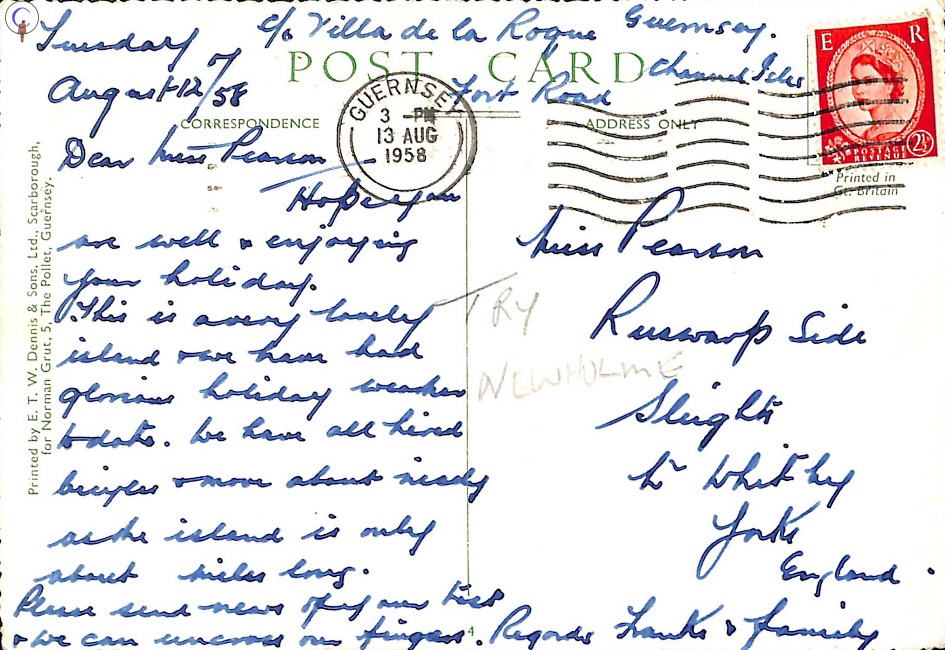 Tuesday
August 12/58
c/o Villa de la Roque
Guernsey.
Fort Road
Channel Isles
POST CARD
CORRESPONDENCE
ADDRESS ONLY
GUERNSEY
3 - PM
13 AUG
1958
E R
POSTAGE
REVENUE
2½
Printed in
Gt. Britain
Dear Miss Pearson
Hope you
are well & enjoying
your holiday.
This is a very lovely
island & we have had
glorious holiday weather
to date. We have all hired
bicycles & move about nicely
as the island is only
about miles long.
Please send news of your
& we can uncross our fingers. Regards & family
Miss Pearson
Ruswarp Side
Sleights
Nr Whitby
Yorks
England.
TRY
NEWHOLME
4
Printed by E. T. W. Dennis & Sons, Ltd., Scarborough,
for Norman Grut, 5, The Pollet, Guernsey.